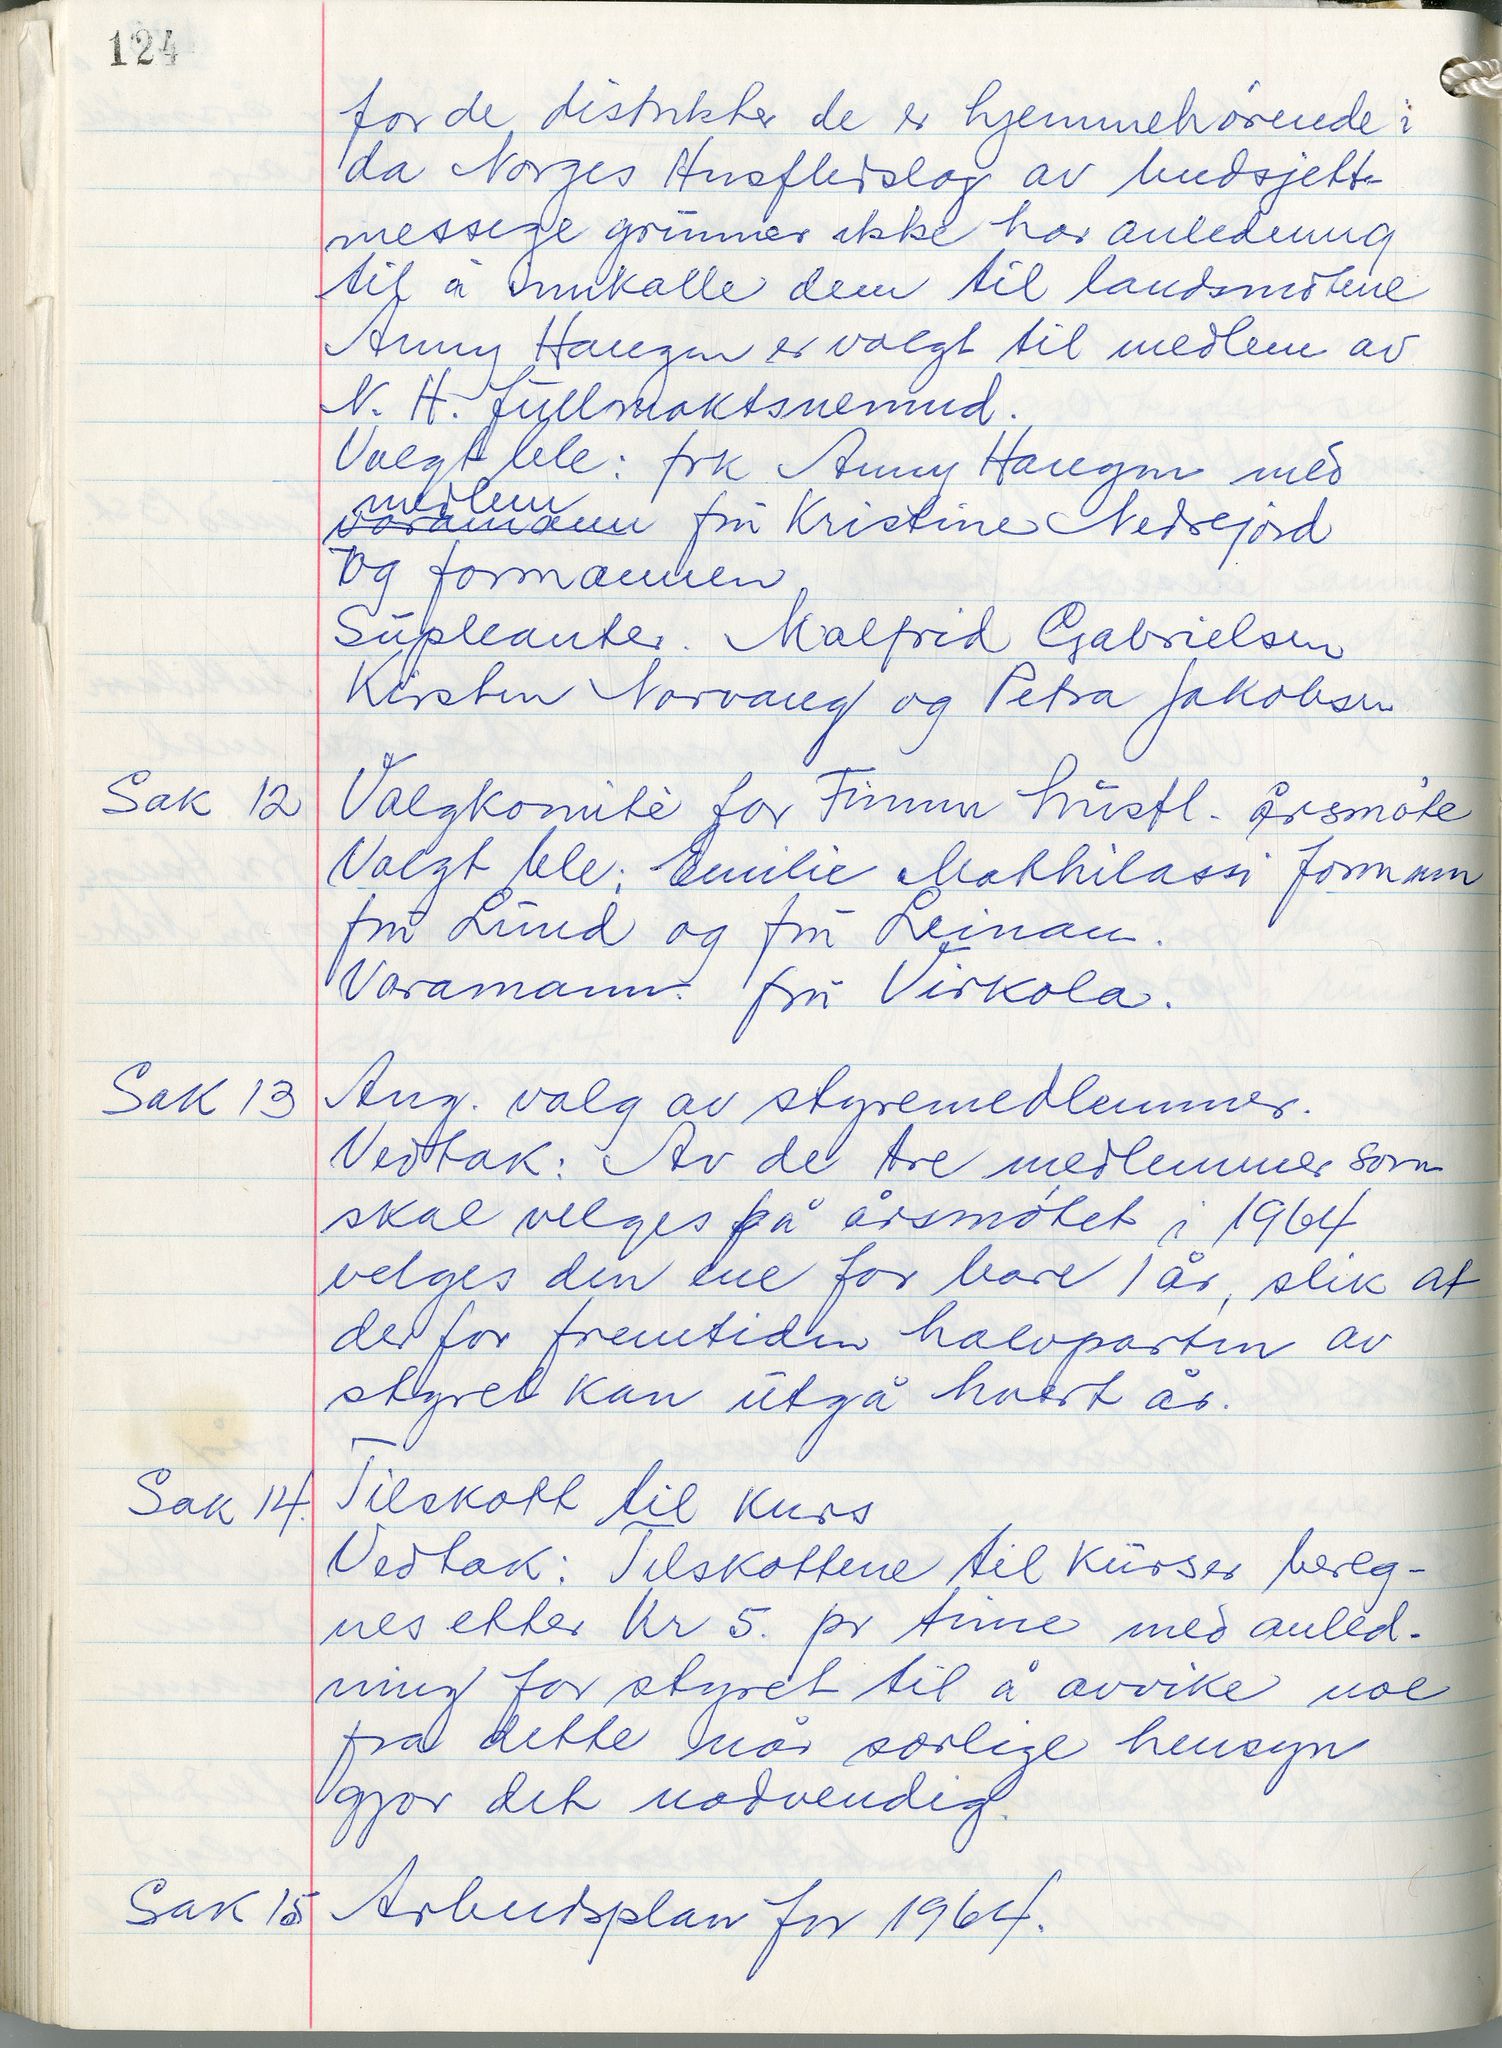 124
for de distrikter de er hjemmehörende i
da Norges Husflidslag av budsjett-
messige grunner ikke har anledning
til å innkalle dem til landsmötene
Anny Haugen er valgt til medlem av
N. H. fullmaktsnemnd.
Valgt ble: frk Anny Haugen med
medlem
varamann fru Kristine Nedrejord
og formannen
Supleanter. Malfrid Gabrielsen
Kirsten Norvang og Petra Jakobsen
Sak 12 Valgkomitè for Finnm husfl. årsmöte
Valgt ble: Emilie Mathilassi formann
fru Lund og fru Leinan.
Varamann: fru Virkola.
Sak 13 Ang. valg av styremedlemmer.
Vedtak: Av de tre medlemmer som
skal velges på årsmötet i 1964
velges den ene for bare 1 år, slik at
der for fremtiden halvparten av
styret kan utgå hvert år.
Sak 14. Tilskott til kurs
Vedtak: Tilskottene til kurser bereg-
nes etter Kr 5. pr time med anled-
ning for styret til å avvike noe
fra dette når sørlige hensyn
gjør det nødvendig.
Sak 15 Arbeidsplan for 1964.